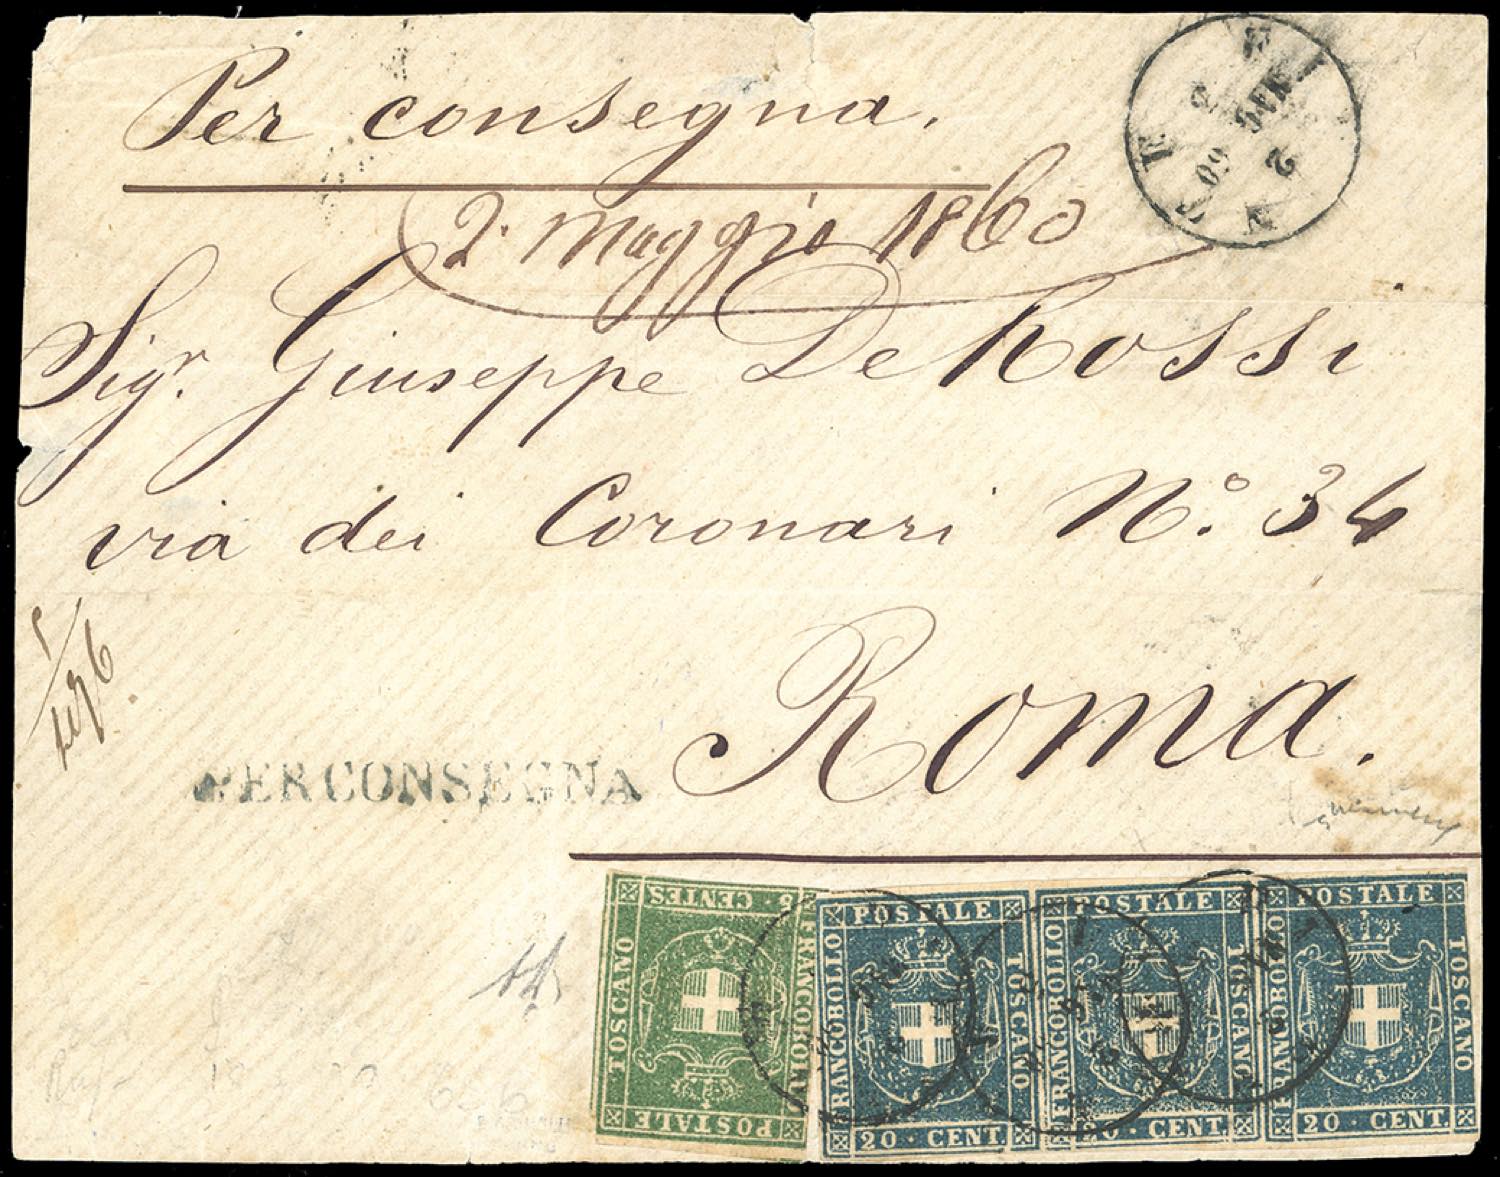 Per consegna.
2. Maggio 1860
Sigr. Giuseppe De Rossi
via dei Coronari N.° 34
Roma.
PER CONSEGNA
FIRENZE
2 MAG 60
5 CENTES
FRANCOBOLLO
TOSCANO
POSTALE
POSTALE
FRANCOBOLLO
TOSCANO
20 · CENT.
POSTALE
FRANCOBOLLO
TOSCANO
20 · CENT.
POSTALE
FRANCOBOLLO
TOSCANO
20 · CENT.